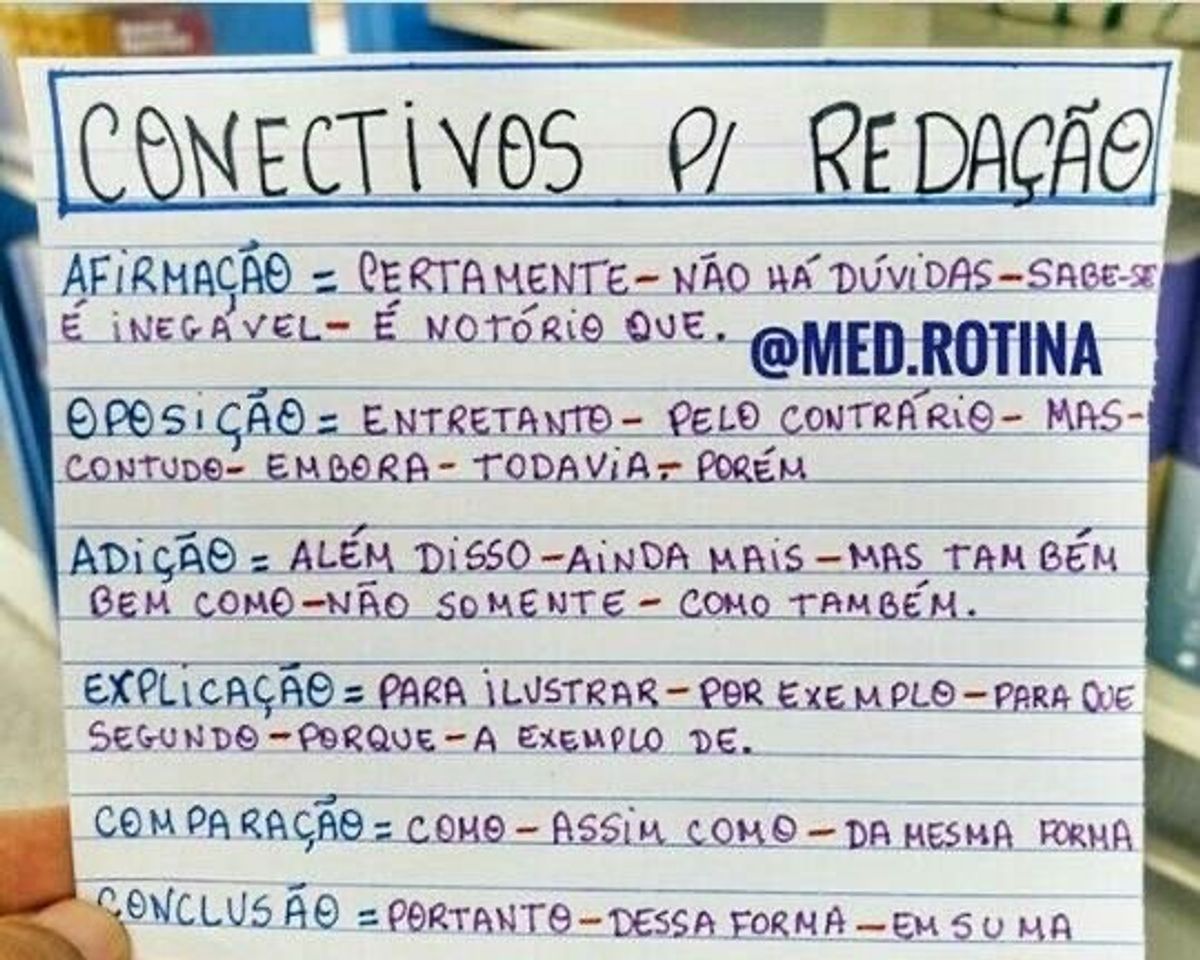 CONECTIVOS P/ REDAÇÃO
AFIRMAÇÃO = CERTAMENTE - NÃO HÁ DÚVIDAS - SABE-SE
É INEGÁVEL - É NOTÓRIO QUE.
@MED.ROTINA
OPOSIÇÃO = ENTRETANTO - PELO CONTRÁRIO - MAS -
CONTUDO - EMBORA - TODAVIA - PORÉM
ADIÇÃO = ALÉM DISSO - AINDA MAIS - MAS TAMBÉM
BEM COMO - NÃO SOMENTE - COMO TAMBÉM.
EXPLICAÇÃO = PARA ILUSTRAR - POR EXEMPLO - PARA QUE
SEGUNDO - PORQUE - A EXEMPLO DE.
COMPARAÇÃO = COMO - ASSIM COMO - DA MESMA FORMA
CONCLUSÃO = PORTANTO - DESSA FORMA - EM SUMA